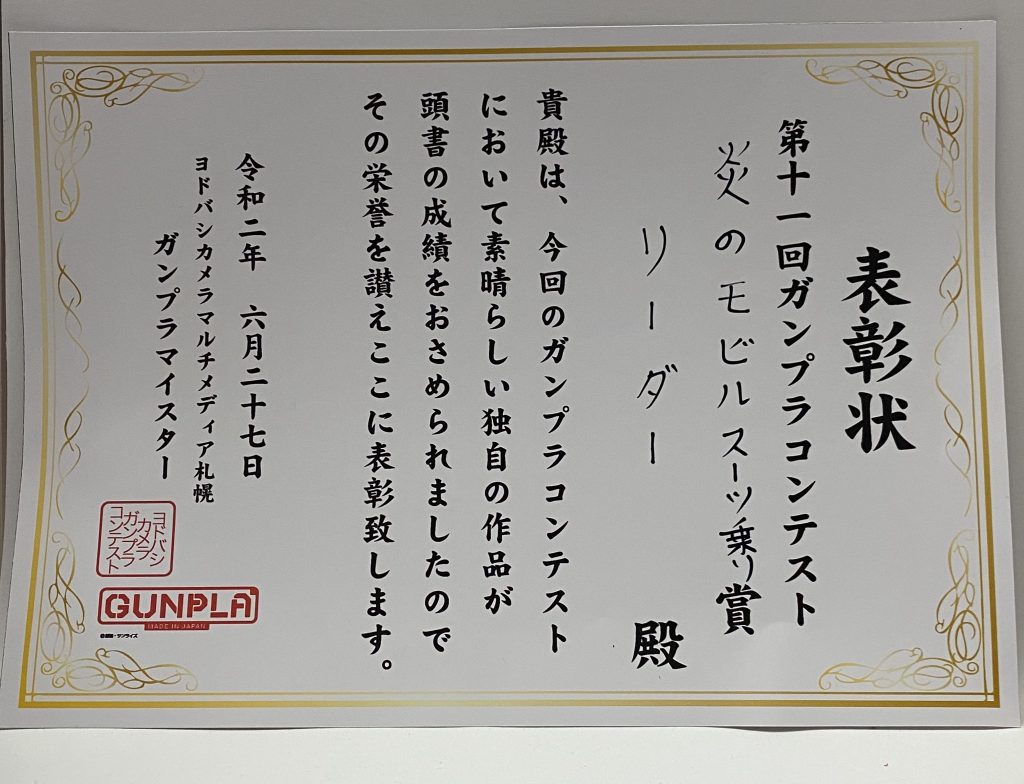 表彰状
第十一回ガンプラコンテスト
炎のモビルスーツ乗り賞
リーダー 殿
貴殿は、今回のガンプラコンテスト
において素晴らしい独自の作品が
頭書の成績をおさめられましたので
その栄誉を讃えここに表彰致します。
令和二年 六月二十七日
ヨドバシカメラマルチメディア札幌
ガンプラマイスター
ヨドバシ
カメラ
ガンプラ
コンテスト
GUNPLA
MADE IN JAPAN
©創通・サンライズ